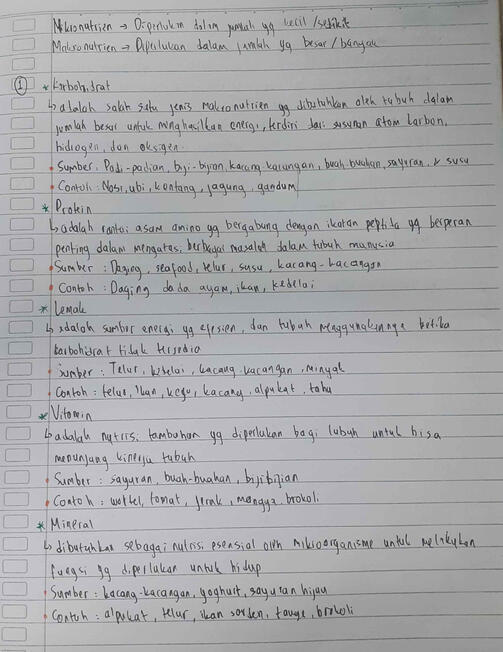 Mikronutrien → Diperlukan dalam jumlah yg kecil / sedikit
Makronutrien → Diperlukan dalam jumlah yg besar / banyak
① * Karbohidrat
↳ adalah salah satu jenis Makronutrien yg dibutuhkan oleh tubuh dalam
jumlah besar untuk menghasilkan energi, terdiri dari susunan atom karbon,
hidrogen, dan oksigen.
• Sumber : Padi-padian, biji-bijian, kacang-kacangan, buah-buahan, sayuran, & susu
• Contoh : Nasi, ubi, kentang, jagung, gandum
* Protein
↳ adalah rantai asam amino yg bergabung dengan ikatan peptida yg berperan
penting dalam mengatasi berbagai masalah dalam tubuh manusia
• Sumber : Daging, seafood, telur, susu, kacang-kacangan
• Contoh : Daging dada ayam, ikan, kedelai
* Lemak
↳ adalah sumber energi yg efesien, dan tubuh menggunakannya ketika
karbohidrat tidak tersedia
• Sumber : Telur, kedelai, kacang-kacangan, minyak
• Contoh : telur, ikan, keju, kacang, alpukat, tahu
* Vitamin
↳ adalah nutrisi tambahan yg diperlukan bagi tubuh untuk bisa
menunjang kinerja tubuh
• Sumber : sayuran, buah-buahan, biji bijian
• Contoh : wortel, tomat, jeruk, mangga, brokoli
* Mineral
↳ dibutuhkan sebagai nutrisi esensial oleh mikroorganisme untuk melakukan
fungsi yg diperlukan untuk hidup
• Sumber : kacang-kacangan, yoghurt, sayuran hijau
• Contoh : alpukat, telur, ikan sarden, tauge, brokoli